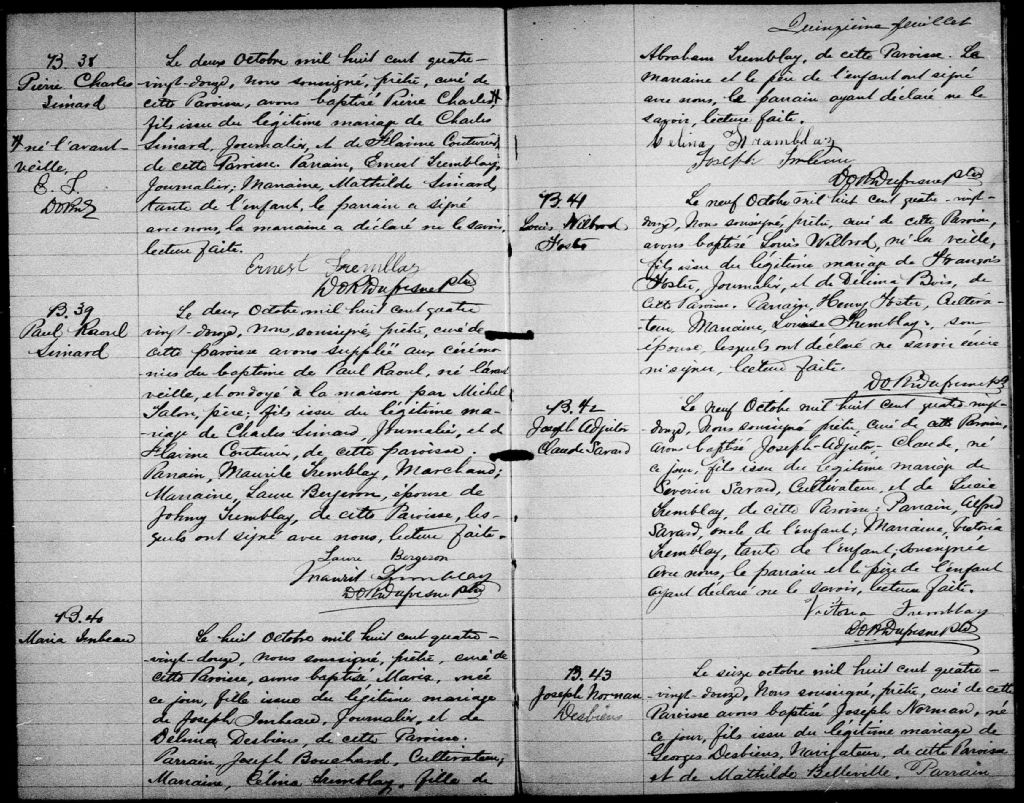 B. 38
Pierre Charles
Simard
né l'avant-
veille,
E. T.
Le deux Octobre mil huit cent quatre-
vingt-douze, nous soussigné, prêtre, curé de
cette Paroisse, avons baptisé Pierre Charles,
fils issu du légitime mariage de Charles
Simard, Journalier, et de Flavine Couturier,
de cette Paroisse. Parrain, Ernest Tremblay,
Journalier; Marraine, Mathilde Simard,
tante de l'enfant, le parrain a signé
avec nous, la marraine a déclaré ne le savoir,
lecture faite.
Ernest Tremblay
D O R Dufresne Ptre
B. 39
Paul Raoul
Simard
Le deux Octobre mil huit cent quatre
vingt-douze, nous, soussigné, prêtre, curé de
cette paroisse avons suppléé aux cérémo-
nies du baptême de Paul Raoul, né l'avant
veille, et ondoyé à la maison par Michel
Talon, père; fils issu du légitime ma-
riage de Charles Simard, Journalier, et de
Flavine Couturier, de cette paroisse.
Parrain, Maurile Tremblay, Marchand;
Marraine, Laure Bergeron, épouse de
Johny Tremblay, de cette Paroisse, les-
quels ont signé avec nous, lecture faite.
Laure Bergeron
Tremblay
D O R Dufresne Ptre
B. 40
Maria Imbeau
Le huit Octobre mil huit cent quatre-
vingt-douze, nous soussigné, prêtre, curé de
cette Paroisse, avons baptisé Maria, née
ce jour, fille issue du légitime mariage
de Joseph Imbeau, Journalier, et de
Délima Desbiens, de cette Paroisse.
Parrain, Joseph Bouchard, Cultivateur;
Marraine, Célina Tremblay, fille de
Quinzième feuillet
Abraham Tremblay, de cette Paroisse. La
marraine et le père de l'enfant ont signé
avec nous, le parrain ayant déclaré ne le
savoir, lecture faite.
Celina Tramblay
Joseph Imbeau
D O R Dufresne Ptre
B. 41
Louis Wilbrod
Foster
Le neuf Octobre mil huit cent quatre-vingt-
douze, Nous soussigné, prêtre, curé de cette Paroisse,
avons baptisé Louis Wilbrod, né la veille,
fils issu du légitime mariage de François
Foster, Journalier, et de Délima Bois, de
cette Paroisse. Parrain, Henry Foster, Cultiva-
teur, Marraine, Louise Tremblay, son
épouse, lesquels ont déclaré ne savoir écrire
ni signer, lecture faite.
D O R Dufresne Ptre
B. 42
Joseph Adjutor
Claude Savard
Le neuf Octobre mil huit cent quatre vingt-
douze, Nous soussigné prêtre, curé de cette Paroisse,
avons baptisé Joseph-Adjutor-Claude, né
ce jour, fils issu du légitime mariage de
Séverin Savard, Cultivateur, et de Lucie
Tremblay, de cette Paroisse; Parrain, Alfred
Savard, oncle de l'enfant; Marraine, Victoria
Tremblay, tante de l'enfant, soussignée
avec nous, le parrain et le père de l'enfant
ayant déclaré ne le savoir, lecture faite.
Vitoria Tremblay
D O R Dufresne Ptre
B. 43
Joseph Norman
Desbiens
Le seize octobre mil huit cent quatre-
vingt-douze, Nous soussigné, prêtre, curé de cette
Paroisse avons baptisé Joseph Norman, né
ce jour, fils issu du légitime mariage de
Georges Desbiens, Navigateur, de cette Paroisse
et de Mathilde Belleville. Parrain